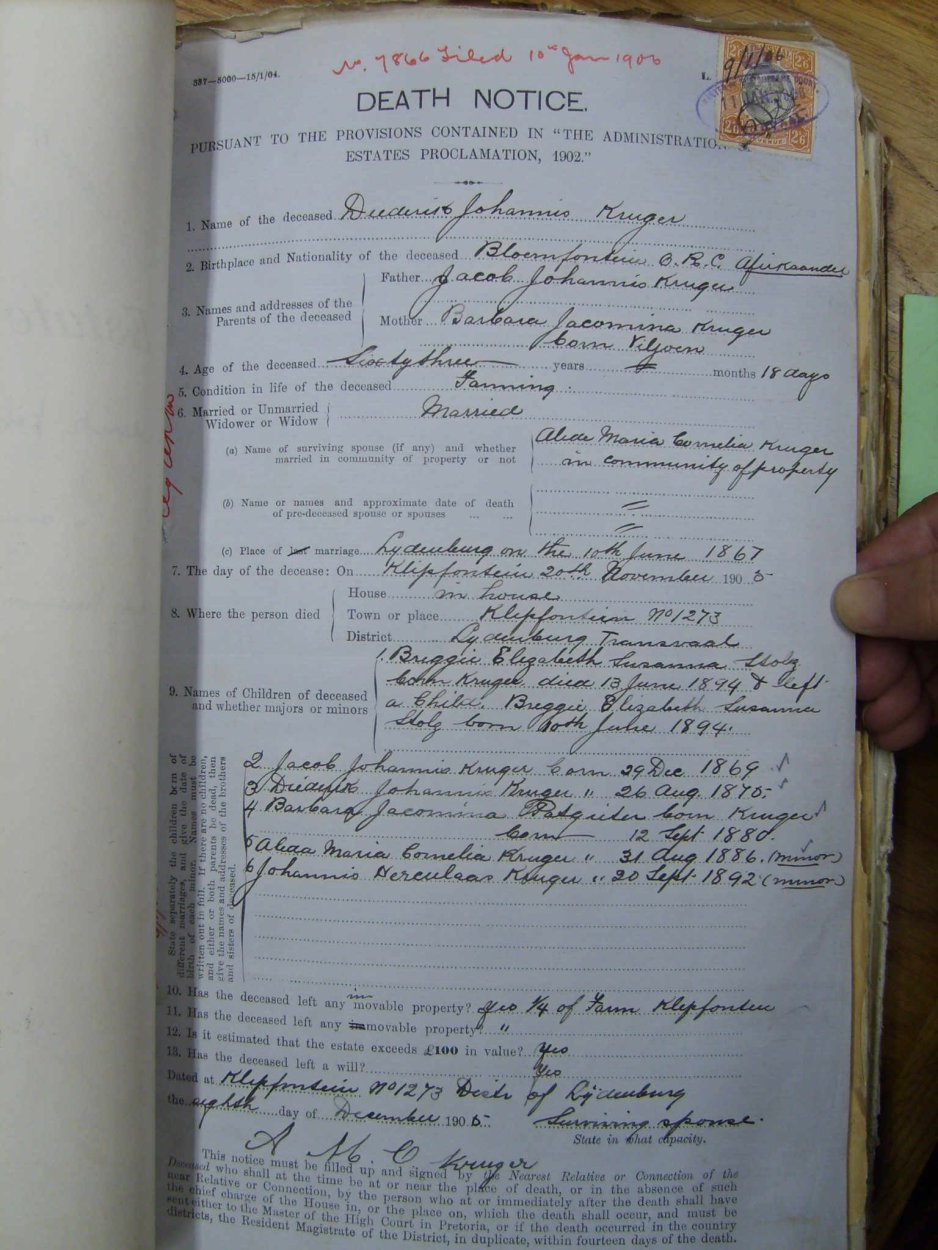 No. 7866 Filed 10th Jan 1906
337—5000—15/1/04.
L.
9/1/06
2/6 2/6
DEATH NOTICE.
PURSUANT TO THE PROVISIONS CONTAINED IN "THE ADMINISTRATION
ESTATES PROCLAMATION, 1902."
1. Name of the deceased Diederik Johannis Kruger
2. Birthplace and Nationality of the deceased Bloemfontein O.R.C. Afrikaander
3. Names and addresses of the Parents of the deceased
Father Jacob Johannis Kruger
Mother Barbara Jacomina Kruger
born Viljoen
4. Age of the deceased Sixty three years months 18 days
5. Condition in life of the deceased Farming.
6. Married or Unmarried Widower or Widow Married
(a) Name of surviving spouse (if any) and whether married in community of property or not
Alida Maria Cornelia Kruger
in community of property
(b) Name or names and approximate date of death of pre-deceased spouse or spouses
(c) Place of last marriage Lydenburg on the 10th June 1867
7. The day of the decease: On Klipfontein 20th November 1905
8. Where the person died
House in house
Town or place Klipfontein No 1273
District Lydenburg Transvaal
9. Names of Children of deceased and whether majors or minors
1. Breggie Elizabeth Susanna Stolz
born Kruger died 13 June 1894 & left
a Child. Breggie Elizabeth Susanna
Stolz born 10th June 1894.
State separately the children born of
different marriages, and give the date of
birth of each minor. Names must be
written out in full. If there are no children,
and either or both parents be dead, then
give the names and addresses of the brothers
and sisters of deceased.
2 Jacob Johannis Kruger born 29 Dec 1869
3 Diederik Johannis Kruger " 26 Aug 1875
4 Barbara Jacomina Potgieter born Kruger
born 12 Sept 1880
5 Alida Maria Cornelia Kruger " 31 Aug 1886. (minor)
6 Johannis Herculaas Kruger " 20 Sept 1892 (minor)
10. Has the deceased left any immovable property? Yes 1/4 of Farm Klipfontein
11. Has the deceased left any immovable property? "
12. Is it estimated that the estate exceeds £100 in value? Yes
13. Has the deceased left a will? Yes
Dated at Klipfontein No 1273 Distr of Lydenburg
the eighth day of December 1905. Surviving spouse.
State in what capacity.
A M C Kruger
This notice must be filled up and signed by the Nearest Relative or Connection of the
Deceased who shall at the time be at or near the place of death, or in the absence of such
near Relative or Connection, by the person who at or immediately after the death shall have
the chief charge of the House in, or the place on, which the death shall occur, and must be
sent either to the Master of the High Court in Pretoria, or if the death occurred in the country
districts, the Resident Magistrate of the District, in duplicate, within fourteen days of the death.